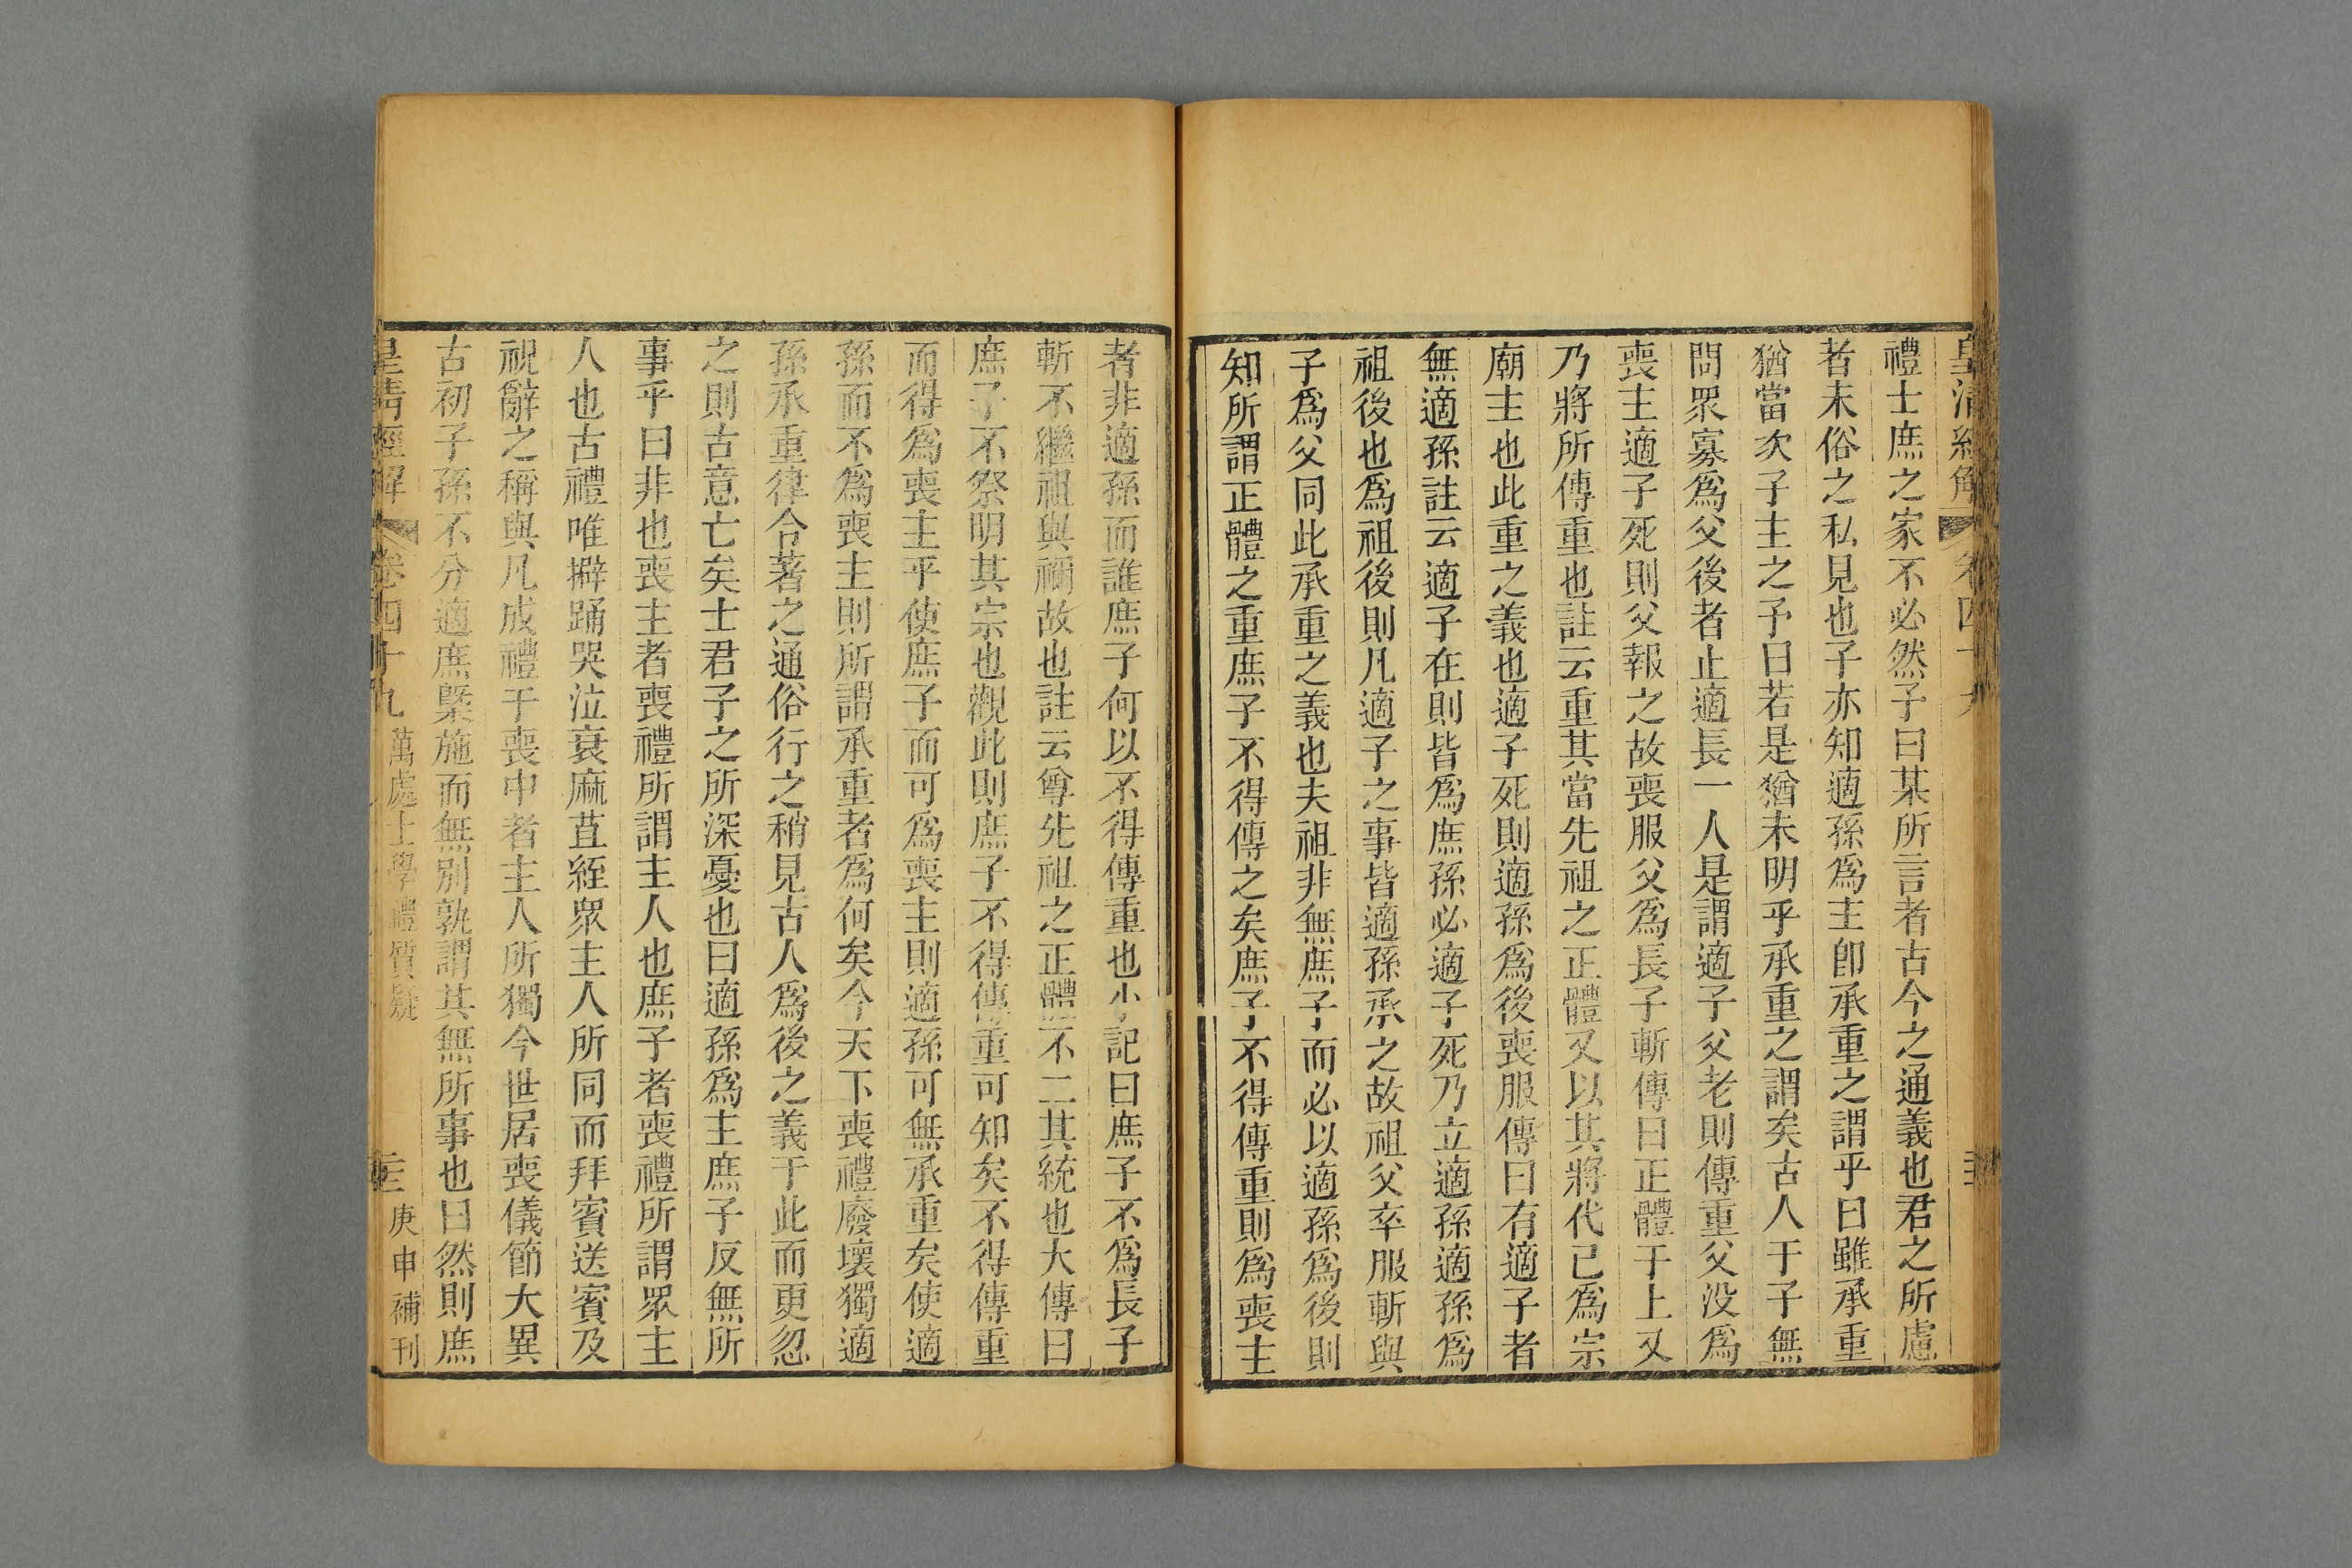 禮士庶之家不必然子曰某所言者古今之通義也君之所慮
者未俗之私見也子亦知適孫爲主卽承重之謂乎曰雖承重
猶當次子主之子曰若是猶未明乎承重之謂矣古人于子無
問眾寡爲父後者止適長一人是謂適子父老則傳重父没爲
喪主適子死則父報之故喪服父爲長子斬傳曰正體于上又
乃將所傳重也註云重其當先祖之正體又以其將代已爲宗
廟主也此重之義也適子死則適孫爲後喪服傳曰有適子者
無適孫註云適子在則皆爲庶孫必適子死乃立適孫適孫爲
祖後也爲祖後則凡適子之事皆適孫承之故祖父卒服斬與
子爲父同此承重之義也夫祖非無庶子而必以適孫爲後則
知所謂正體之重庶子不得傳之矣庶子不得傳重則爲喪主
者非適孫而誰庶子何以不得傳重也小記曰庶子不爲長子
斬不繼祖與禰故也註云尊先祖之正體不二其統也大傳曰
庶子不祭明其宗也觀此則庶子不得傳重可知矣不得傳重
而得爲喪主乎使庶子而可爲喪主則適孫可無承重矣使適
孫而不爲喪主則所謂承重者爲何矣今天下喪禮廢壞獨適
孫承重律令著之通俗行之稍見古人爲後之義于此而更忽
之則古意亡矣士君子之所深憂也曰適孫爲主庶子反無所
事乎曰非也喪主者喪禮所謂主人也庶子者喪禮所謂眾主
人也古禮唯擗踊哭泣衰麻苴絰眾主人所同而拜賓送賓及
祝辭之稱與凡成禮于喪中者主人所獨今世居喪儀節大異
古初子孫不分適庶槩施而無別孰謂其無所事也曰然則庶
皇清經解 卷四十九 萬處士學禮質疑 三 庚申補刊